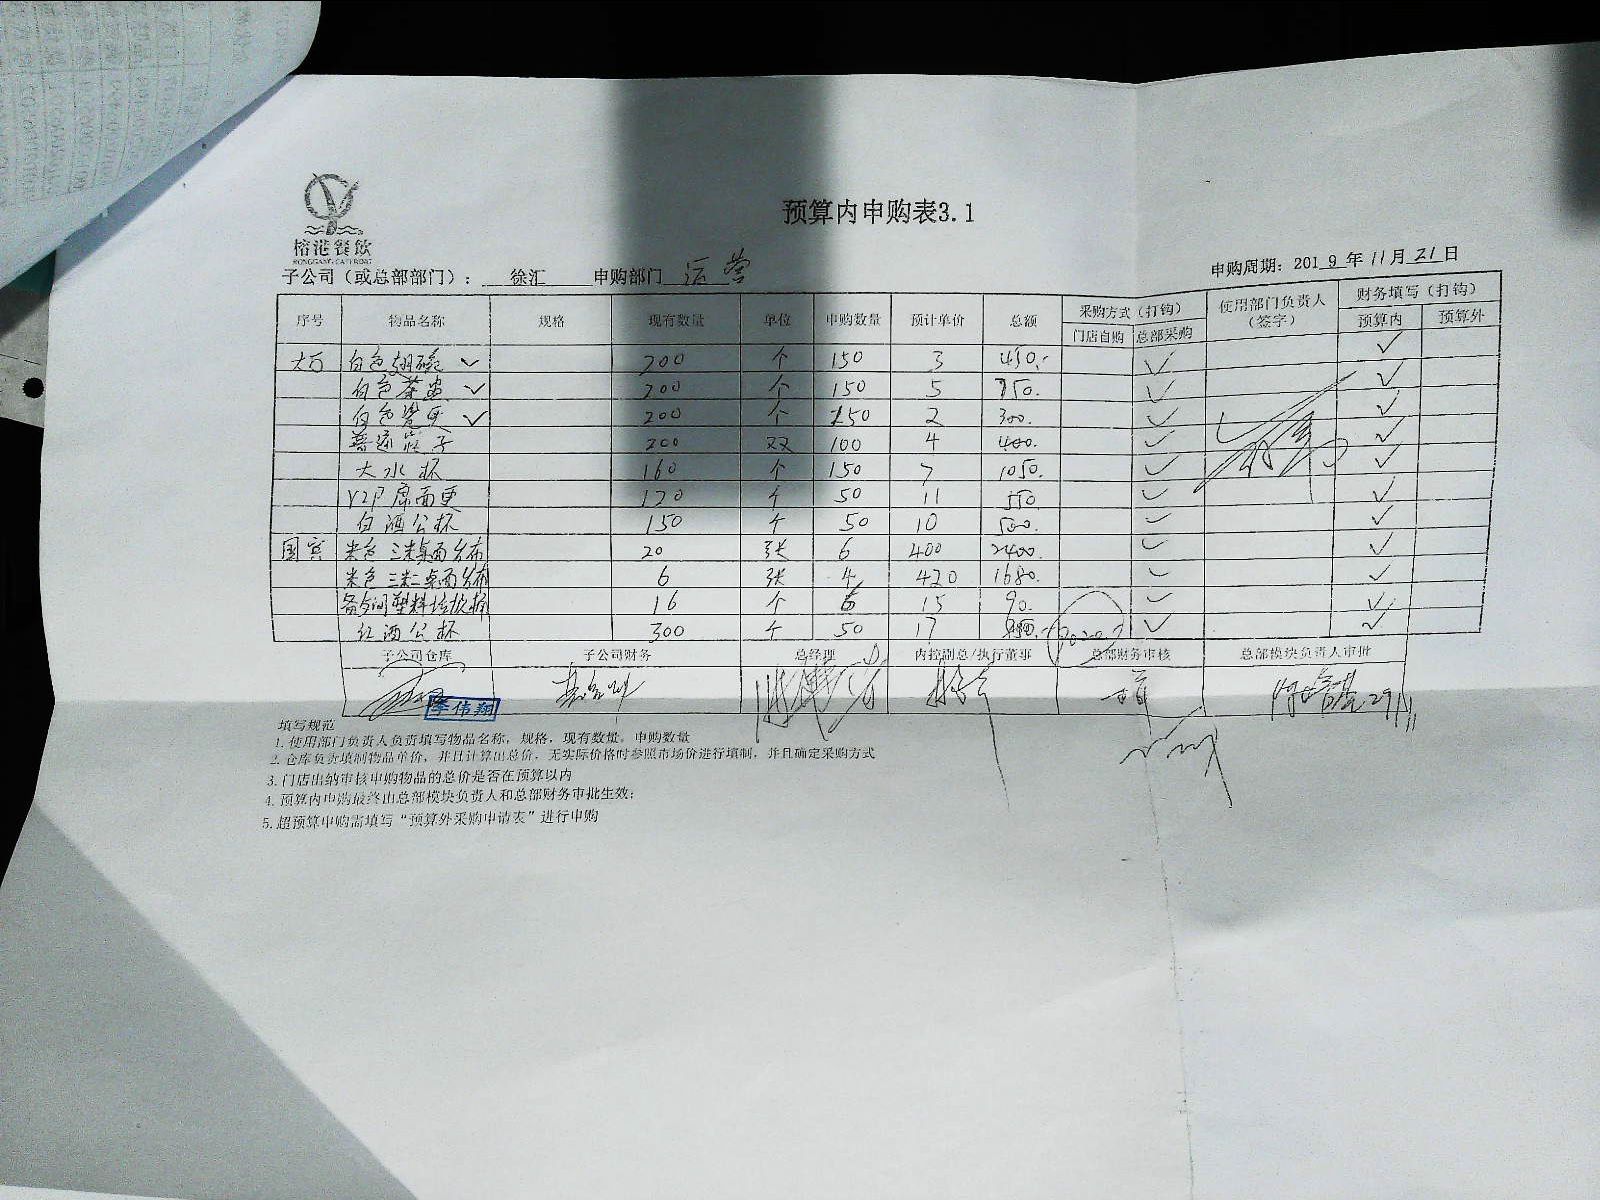 榕港餐飲
RONGGANG CATERING
预算内申购表3.1
子公司（或总部部门）： 徐汇 申购部门 运营
申购周期：2019年11月21日
序号 物品名称 规格 现有数量 单位 申购数量 预计单价 总额 采购方式（打钩） 使用部门负责人（签字） 财务填写（打钩）
门店自购 总部采购 预算内 预算外
白色翅碗 ✓ 200 个 150 3 450.- ✓ ✓
白色茶盅 ✓ 200 个 150 5 750. ✓ ✓
白色瓷更 ✓ 200 个 150 2 300. ✓ ✓
普通筷子 200 双 100 4 400. ✓ ✓
大水杯 160 个 150 7 1050. ✓ ✓
VIP席面更 170 个 50 11 550 ✓ ✓
白酒公杯 150 个 50 10 500. ✓ ✓
国宾 米色三米桌面台布 20 张 6 400 2400. ✓ ✓
米色三米二桌面台布 6 张 4 420 1680. ✓ ✓
备餐间塑料垃圾桶 16 个 6 15 90. ✓ ✓
红酒公杯 300 个 50 17 ✓ ✓
子公司仓库 子公司财务 总经理 内控副总/执行董事 总部财务审核 总部模块负责人审批
李伟翔
29/11
填写规范
1. 使用部门负责人负责填写物品名称，规格，现有数量，申购数量
2. 仓库负责填制物品单价，并且计算出总价，无实际价格时参照市场价进行填制，并且确定采购方式
3. 门店出纳审核申购物品的总价是否在预算以内
4. 预算内申购最终由总部模块负责人和总部财务审批生效；
5. 超预算申购需填写“预算外采购申请表”进行申购